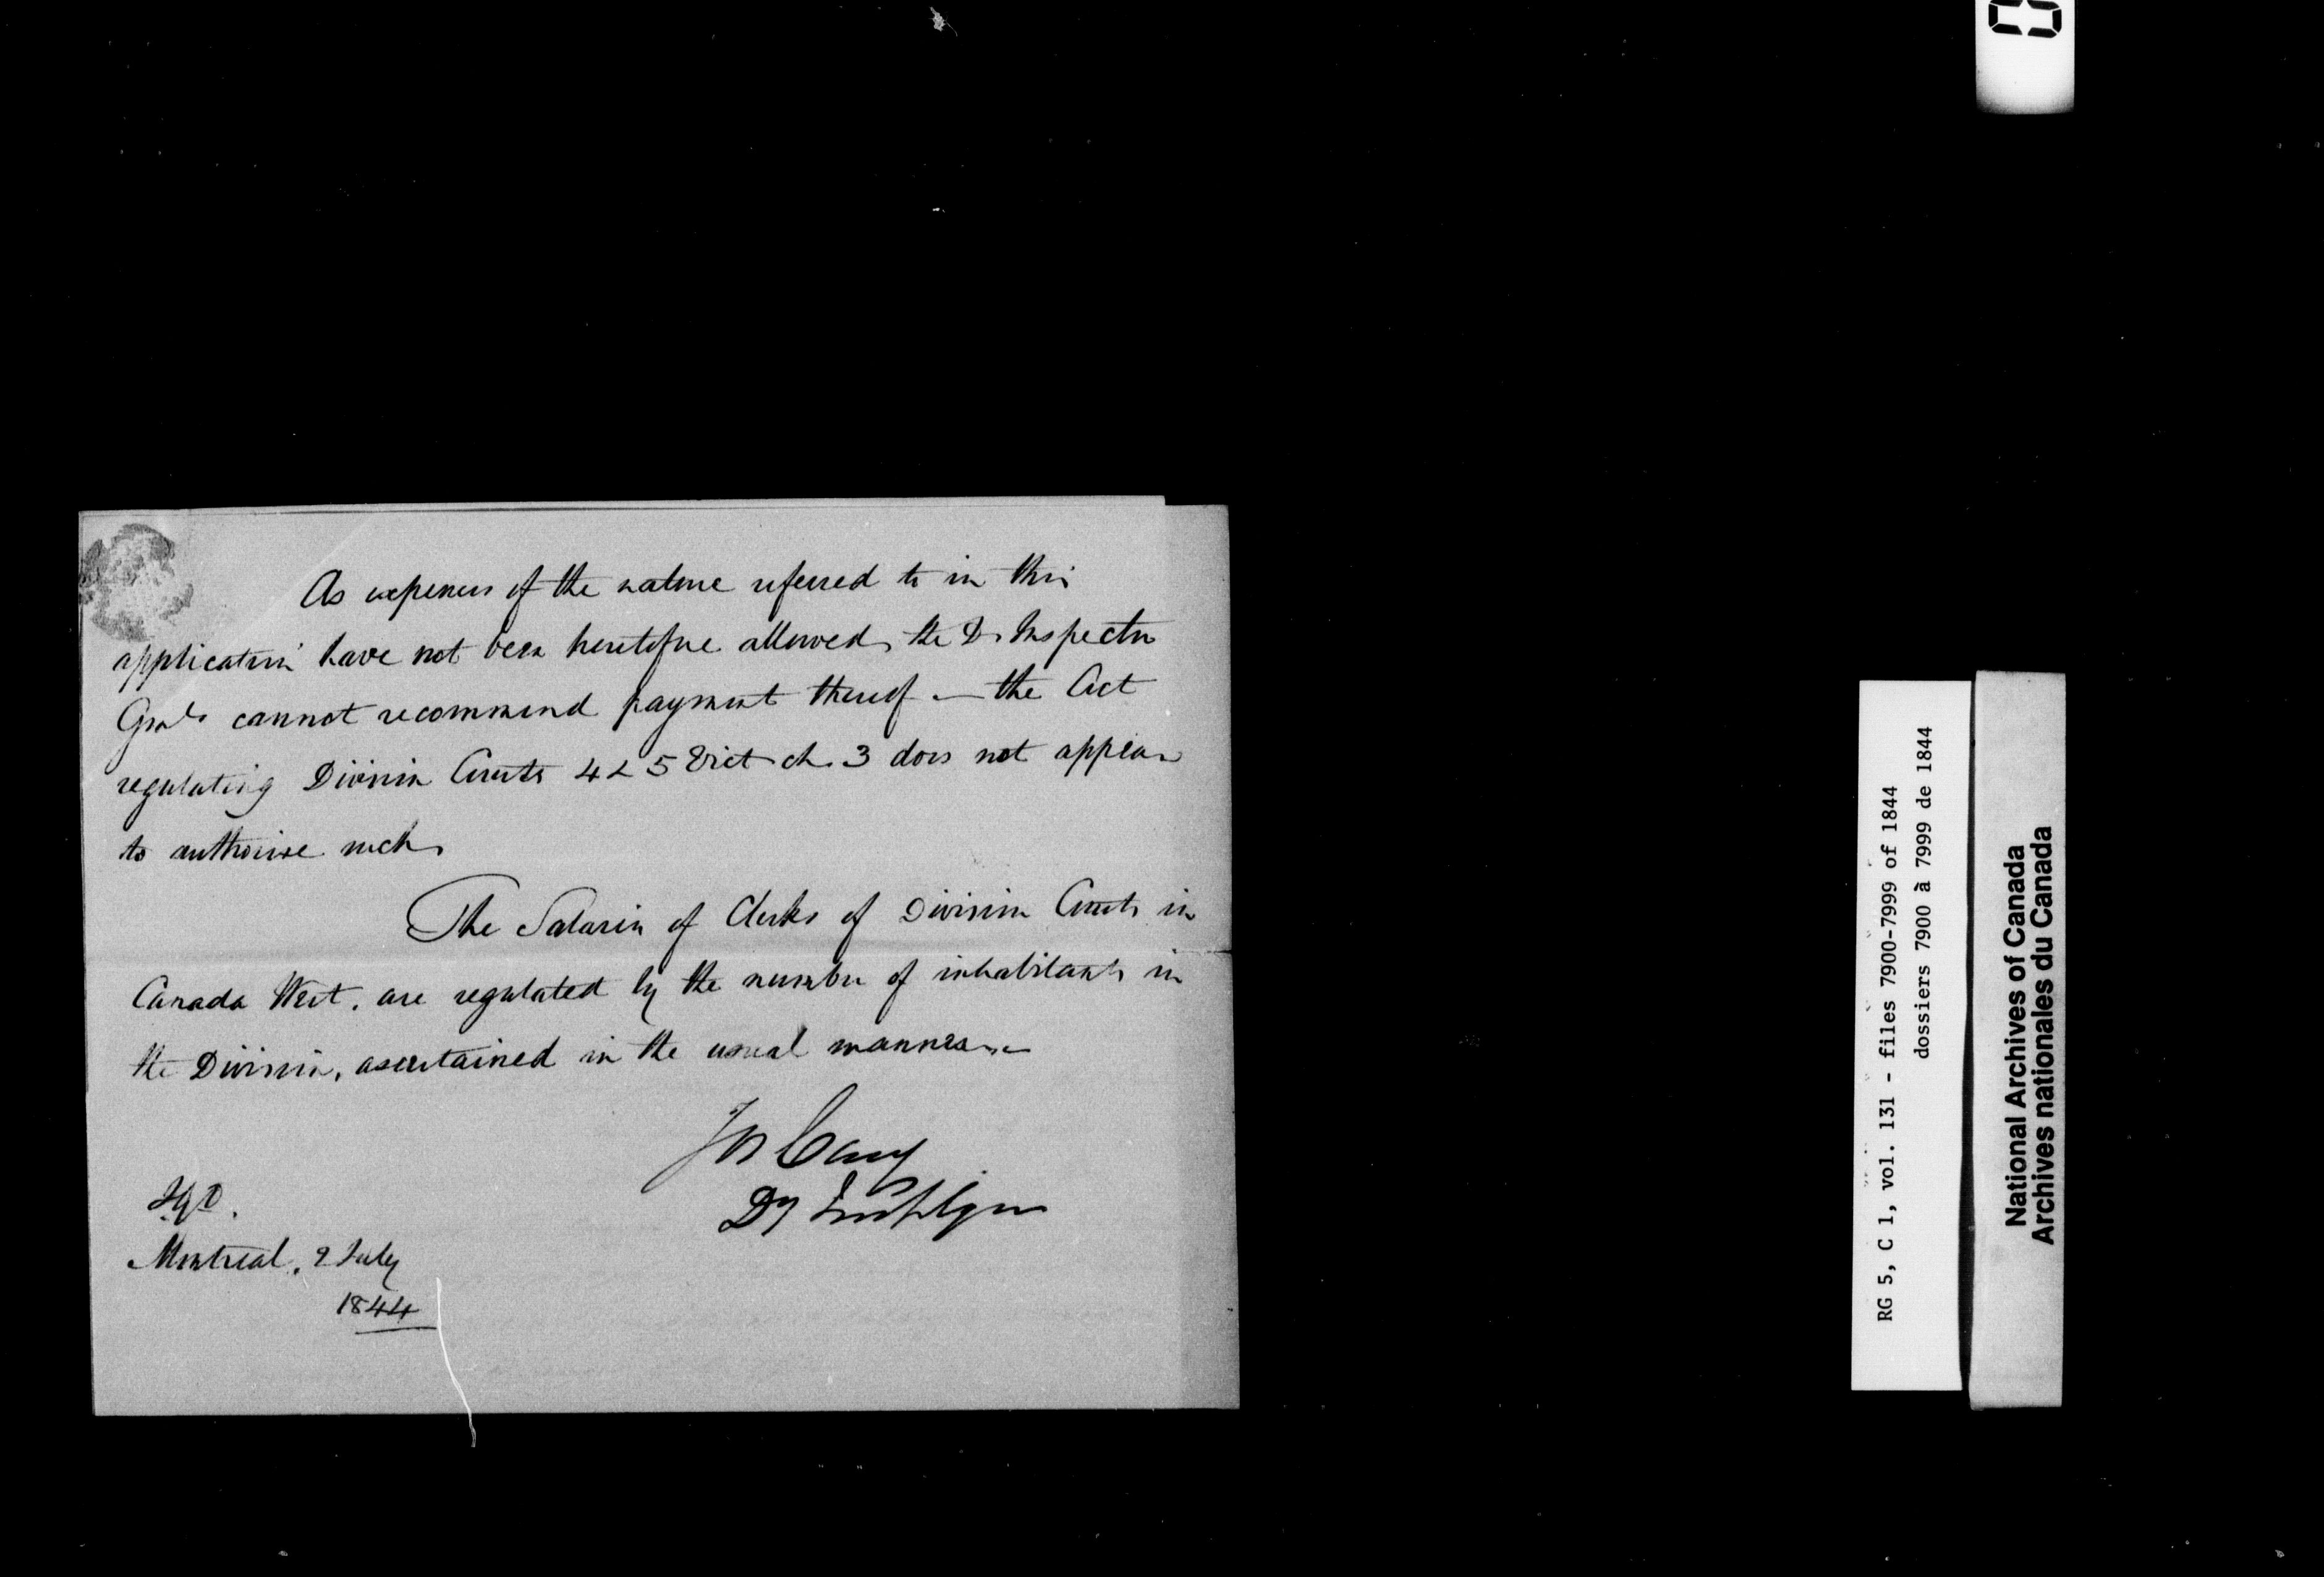 As expenses of the nature referred to in this
application have not been heretofore allowed, the D. Inspector
Genl. cannot recommend payment thereof — the Act
regulating Division Courts 4 & 5 Vict ch. 3 does not appear
to authorise such.
The Salaries of Clerks of Division Courts in
Canada West, are regulated by the number of inhabitants in
the Division, ascertained in the usual manner —
Jos Cary
Dy Insp Genl
I.G.O.
Montreal, 2 July
1844
RG 5, C 1, vol. 131 - files 7900-7999 of 1844
dossiers 7900 à 7999 de 1844
National Archives of Canada
Archives nationales du Canada